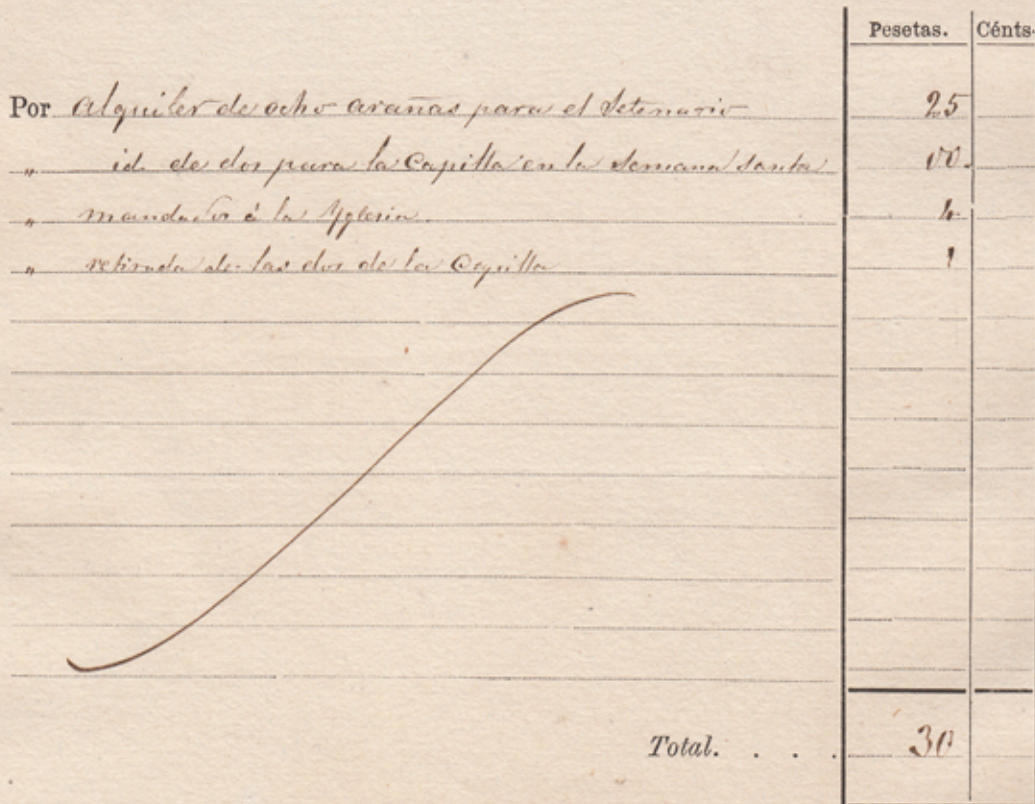 Pesetas. Cénts.
Por alquiler de ocho arañas para el Setenario 25
„ id. de dos para la Capilla en la Semana Santa 00.
„ mandados á la Yglesia. 4
„ retirada de las dos de la Capilla 1
Total. . . . 30